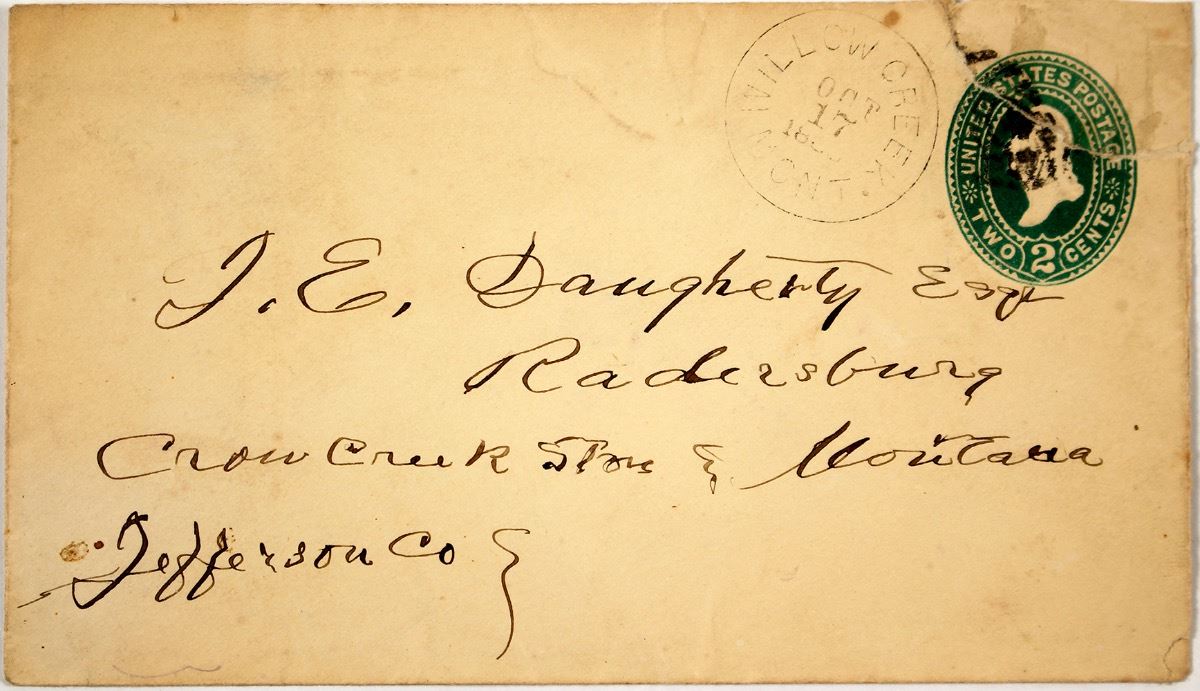 WILLOW CREEK MONT.
OCT
17
UNITED STATES POSTAGE
TWO 2 CENTS
J. E. Daugherty Esqr
Radersburg
Crow Creek Montana
Jefferson Co